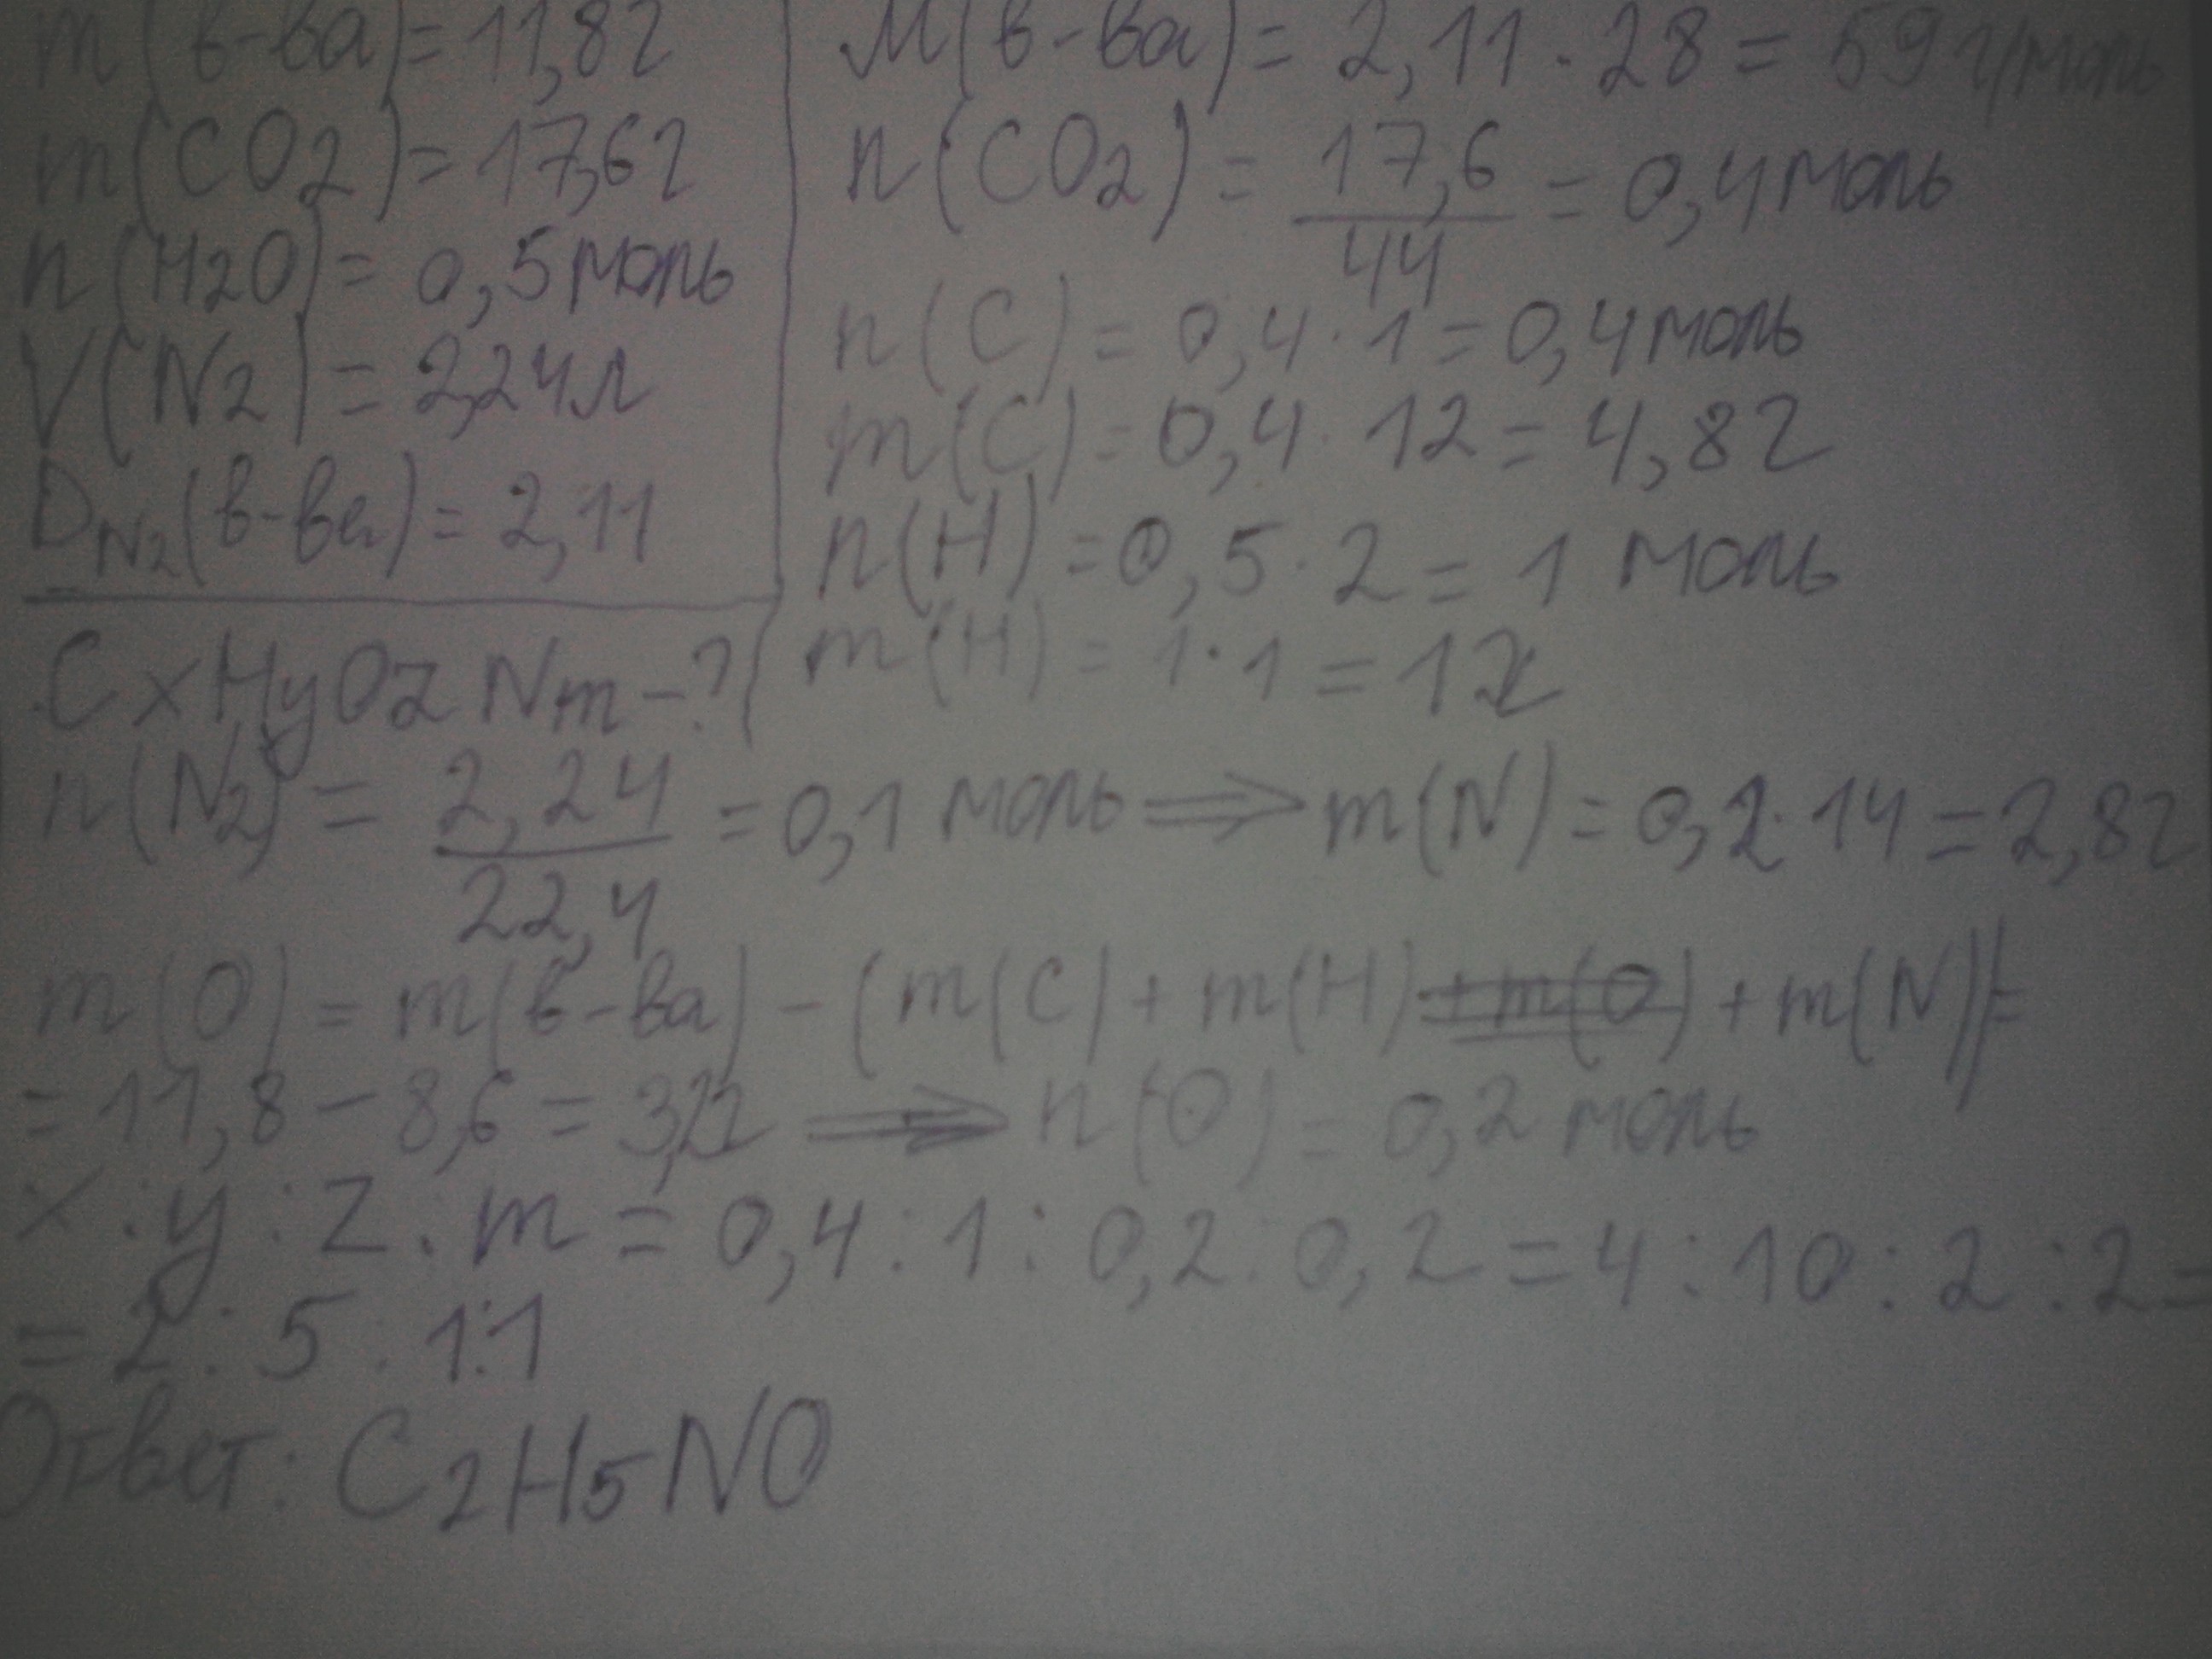 m(в-ва)=11,8г
m(CO2)=17,6г
n(H2O)=0,5моль
V(N2)=2,24л
DN2(в-ва)=2,11
CxHyOzNm-?
M(в-ва)=2,11·28=59г/моль
n(CO2)=17,6/44=0,4моль
n(C)=0,4·1=0,4моль
m(C)=0,4·12=4,8г
n(H)=0,5·2=1 моль
m(H)=1·1=1г
n(N2)=2,24/22,4=0,1 моль⟹m(N)=0,2·14=2,8г
m(O)=m(в-ва)-(m(C)+m(H)+m(O)+m(N))=
=11,8-8,6=3,2г⟹n(O)=0,2 моль
x:y:z:m=0,4:1:0,2:0,2=4:10:2:2=
=2:5:1:1
Ответ: C2H5NO